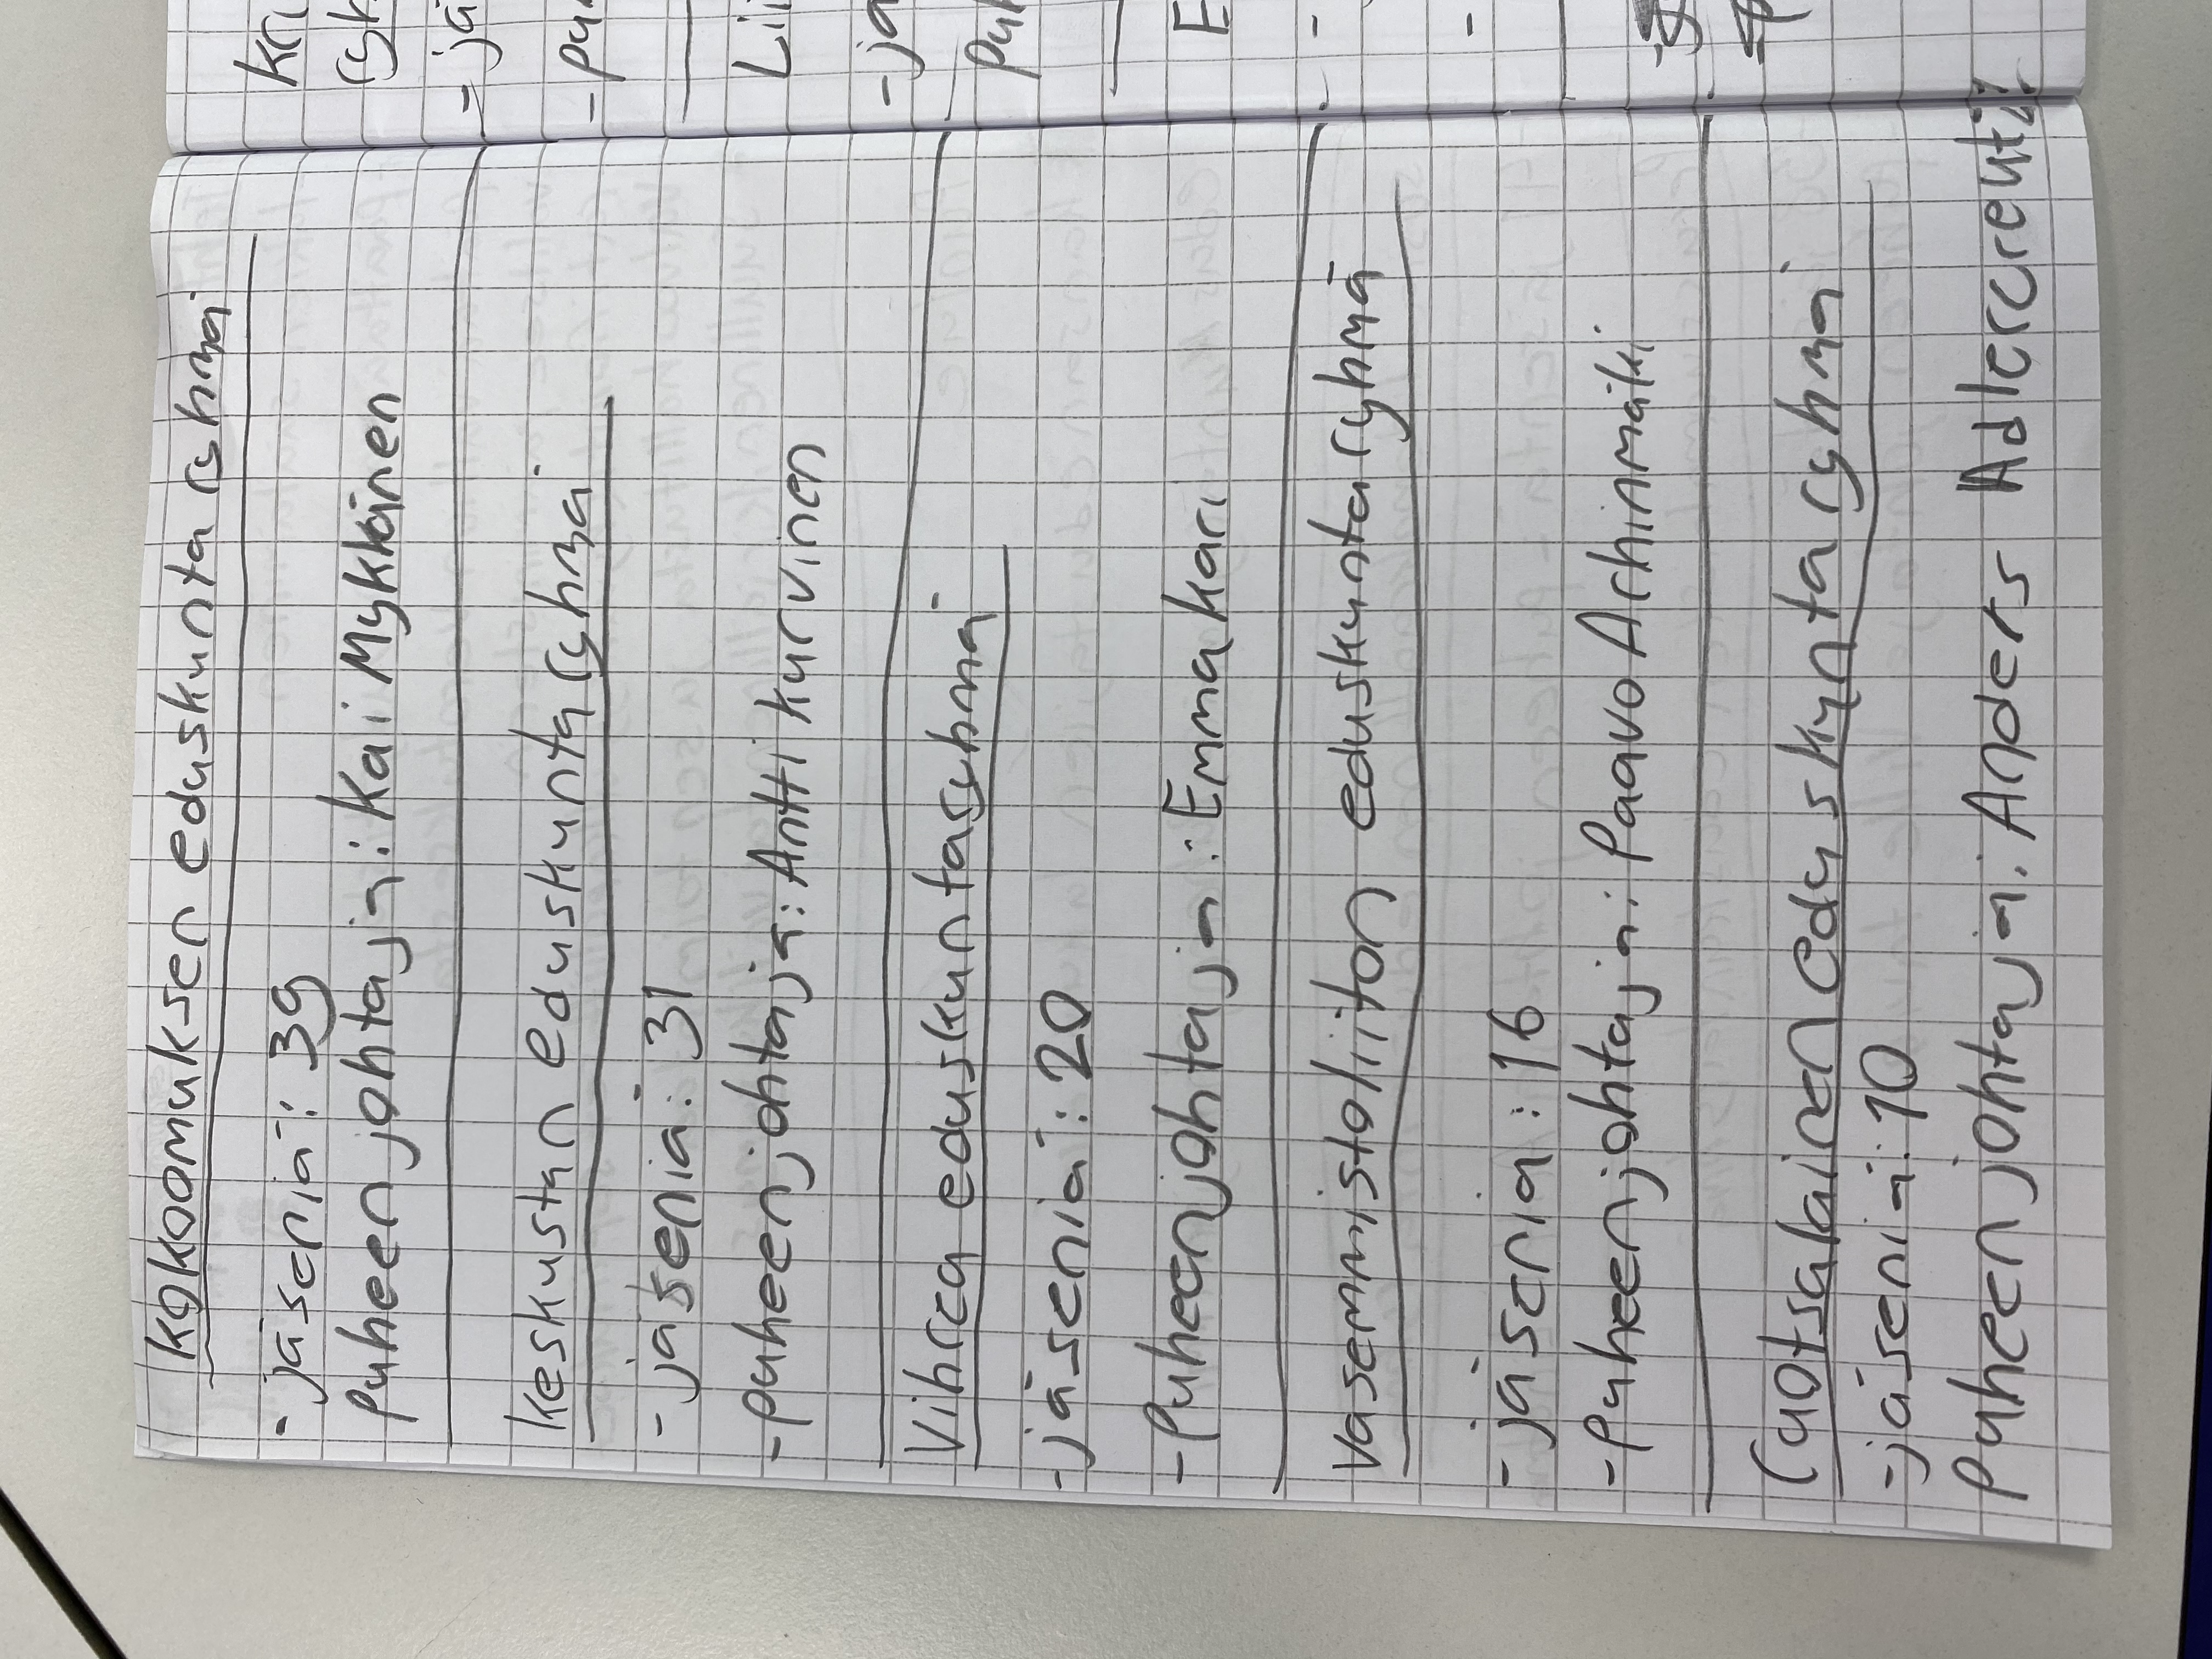 kokoomuksen eduskunta ryhmä
- jäseniä: 39
Puheenjohtaja: Kai Mykkänen
keskustan eduskunta ryhmä
- jäseniä: 31
- puheenjohtaja: Antti kurvinen
Vihreä eduskuntaryhmä
- jäseniä: 20
- Puheenjohtaja: Emma kari
Vasemmistoliiton eduskunta ryhmä
- jäseniä: 16
- Puheenjohtaja: Paavo Arhinmäki
ruotsalainen eduskunta ryhmä
- jäseniä: 10
Puheen johtaja: Anders Adlercreutz
kri
ryk
- jä
- pu
Lii
- jä
Puh
E
-
-